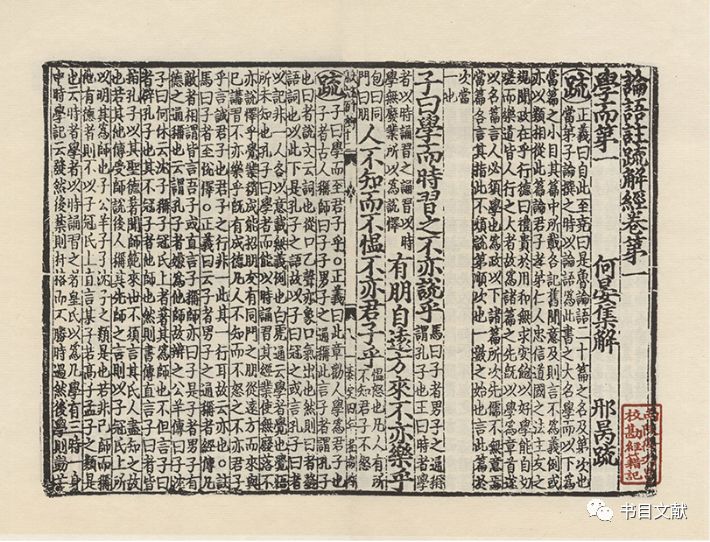 論語註疏解經卷第一
學而第一 何晏集解 邢昺疏
疏 正義曰自此至堯曰是魯論語二十篇之名及第次也
當弟子論撰之時以論語為此書之大名學而以下為
當篇之小目其篇中所載各記舊聞意及則言不為義例或
亦以類相從此篇論君子孝弟仁人忠信道國之法主友之
規聞政在乎行德由禮貴於用和無求安飽以好學能自切
磋而樂道皆人行之大者故為諸篇之先既以學為章首遂
以名篇言人必須學也為政以下諸篇所次先儒不無意焉
當篇各言其指此不煩說第順次也一數之始也言此篇於
次當
一也
子曰學而時習之不亦說乎 馬曰子者男子之通稱
謂孔子也王曰時者學
者以時誦習之誦習以時
學無廢業所以為說懌 有朋自遠方來不亦樂乎
包曰同
門曰朋 人不知而不慍不亦君子乎 慍怒也凡人有所
不知君子不怒
疏 子曰學而至君子乎○正義曰此章勸人學為君子也
子者古人稱師曰子子男子之通稱此言子者謂孔子
也曰者說文云詞也從口乙聲亦象口氣出也然則曰者發
語詞也以此下是孔子之語故以子曰冠之或言孔子曰者
以記非一人各以意載無義例也白虎通云學者覺也覺悟
所未知也孔子曰學者而能以時誦習其經業使無廢落不
亦說懌乎學業稍成能招朋友有同門之朋從遠方而來與
已講習不亦樂乎既有成德凡人不知而不怒之不亦君子
乎言誠君子也君子之行非一此其一行耳故云亦也○註
馬曰子者至說懌○正義曰云子者男子之通稱者經傳凡
敵者相謂皆言吾子或直言子稱師亦曰子是子者男子有
德之通稱也云謂孔子者嫌為他師故辨之公羊傳曰子沈
子曰何休云沈子稱子冠氏上者著其為師也不但言子曰
者辟孔子也其不冠子者他師也然則書傳直言子曰者皆
指孔子以其聖德著聞師範來世不須言其氏人盡知之故
也若其他傳受師說後人稱其先師之言則以子冠氏上所
以明其為師也子公羊子子沈子之類是也若非己師而稱
他有德者則不以子冠氏上直言某子若高子孟子之類是
也云時者學者以時誦習之者皇氏以為凡學有三時一身
中時學記云發然後禁則扞格而不勝時過然後學則勤苦
校勘經籍記
书目文献